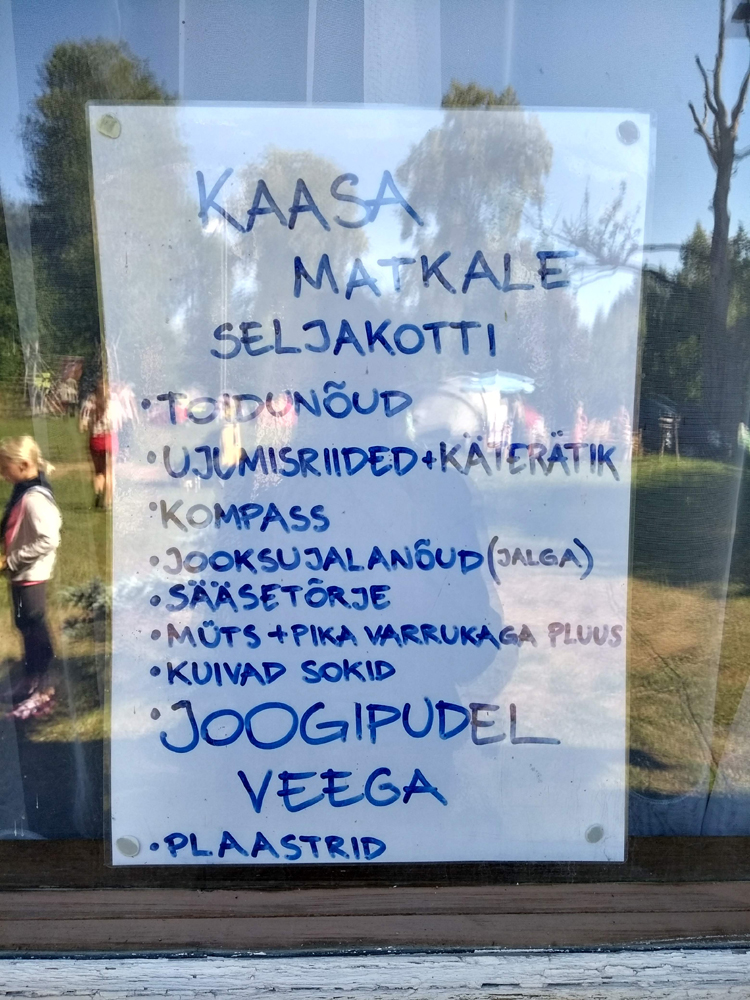 KAASA
MATKALE
SELJAKOTTI
•TOIDUNÕUD
•UJUMISRIIDED+KÄTERÄTIK
•KOMPASS
•JOOKSUJALANÕUD(JALGA)
•SÄÄSETÕRJE
•MÜTS+PIKA VARRUKAGA PLUUS
•KUIVAD SOKID
•JOOGIPUDEL
VEEGA
•PLAASTRID